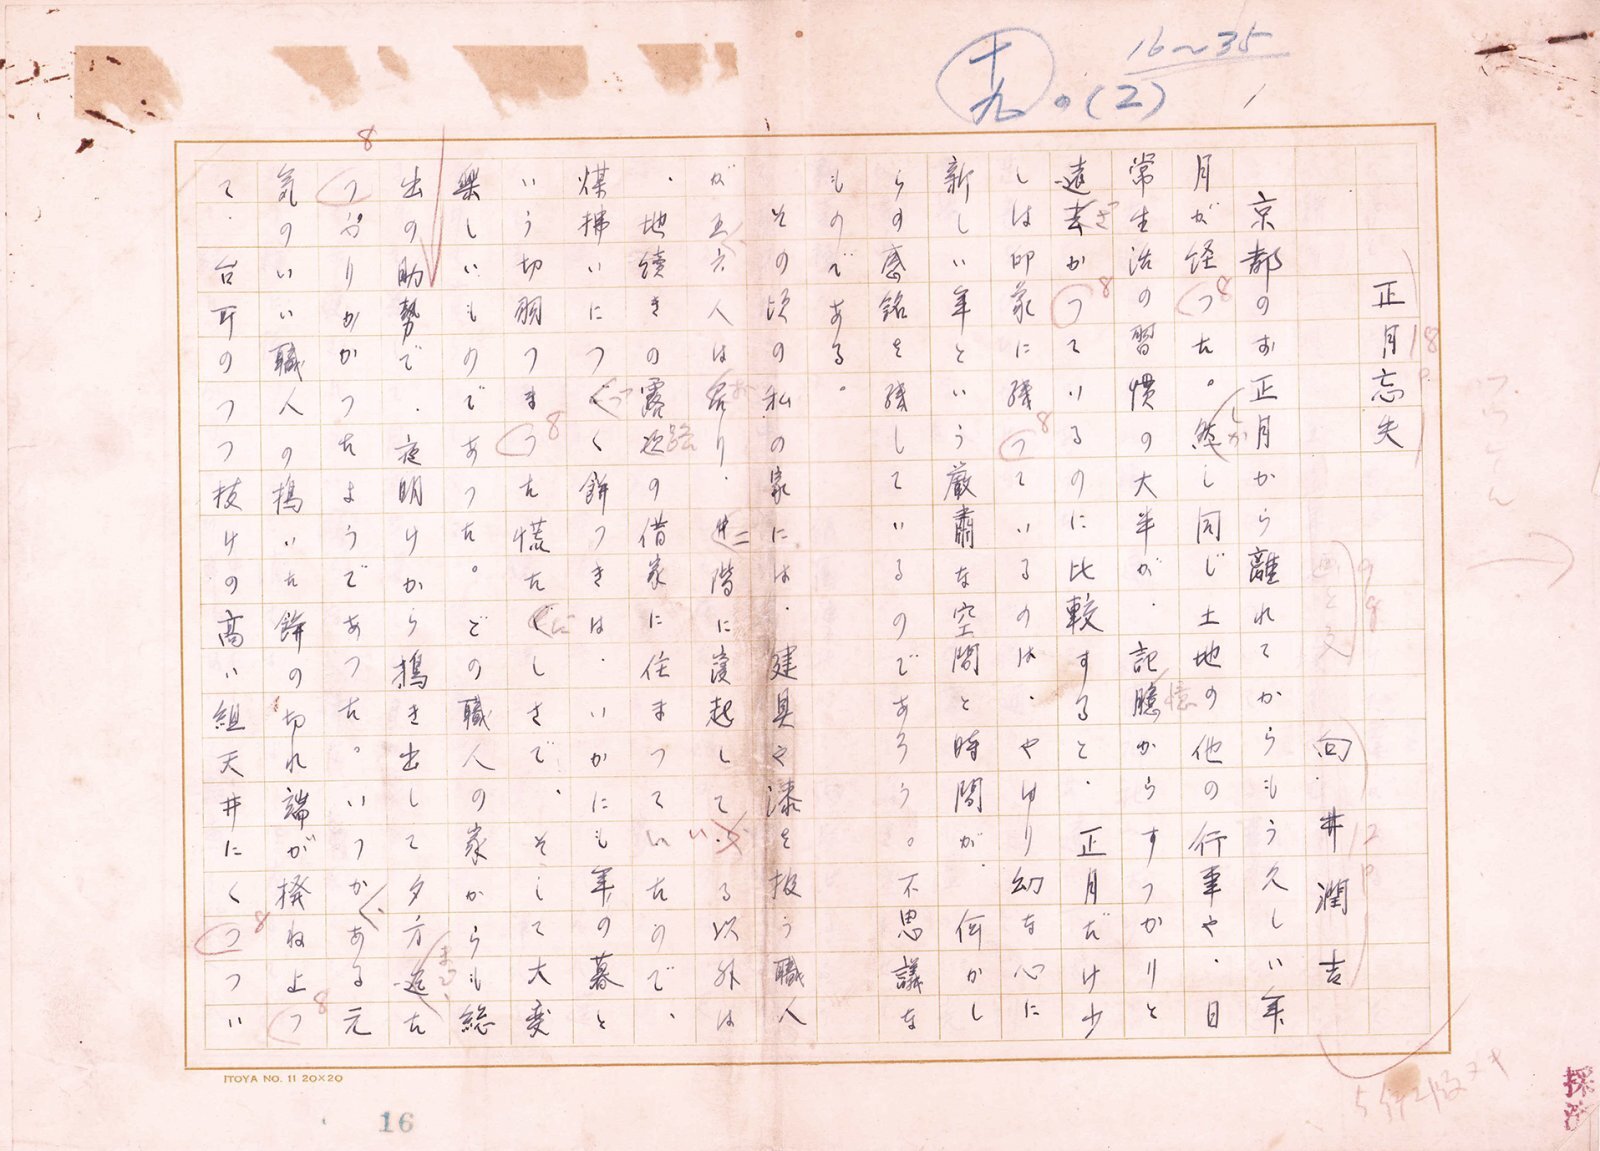 16~35
十九。(2)
正月忘失
18P
向井潤吉
12P
京都のお正月から離れてからもう久しい年
月が経つた。然し同じ土地の他の行事や、日
しか
常生活の習慣の大半が、記臆からすつかりと
憶
遠去かつているのに比較すると、正月だけ少
ざ
しは印象に残つているのは、やはり幼な心に
新しい年という厳粛な空間と時間が、何かし
らの感銘を残しているのであろう。不思議な
ものである。
その頃の私の家には、建具や漆を扱う職人
が五六人は居り、二階に寝起している以外は
お
、地続きの露次の借家に住まつていたので、
路
煤拂いにつぐ餅つきは、いかにも年の暮と
いう切羽つまつた慌たしさで、そして大変
楽しいものであつた。どの職人の家からも総
出の助勢で、夜明けから搗き出して夕方迄た
まで
つぷりかかつたようであつた。いつかある元
気のいい職人の搗いた餅の切れ端が撥ね上つ
て、台所のつつ抜けの高い組天井にくつつい
8
8
8
8
8
8
8
98
ITOYA NO. 11 20×20
16